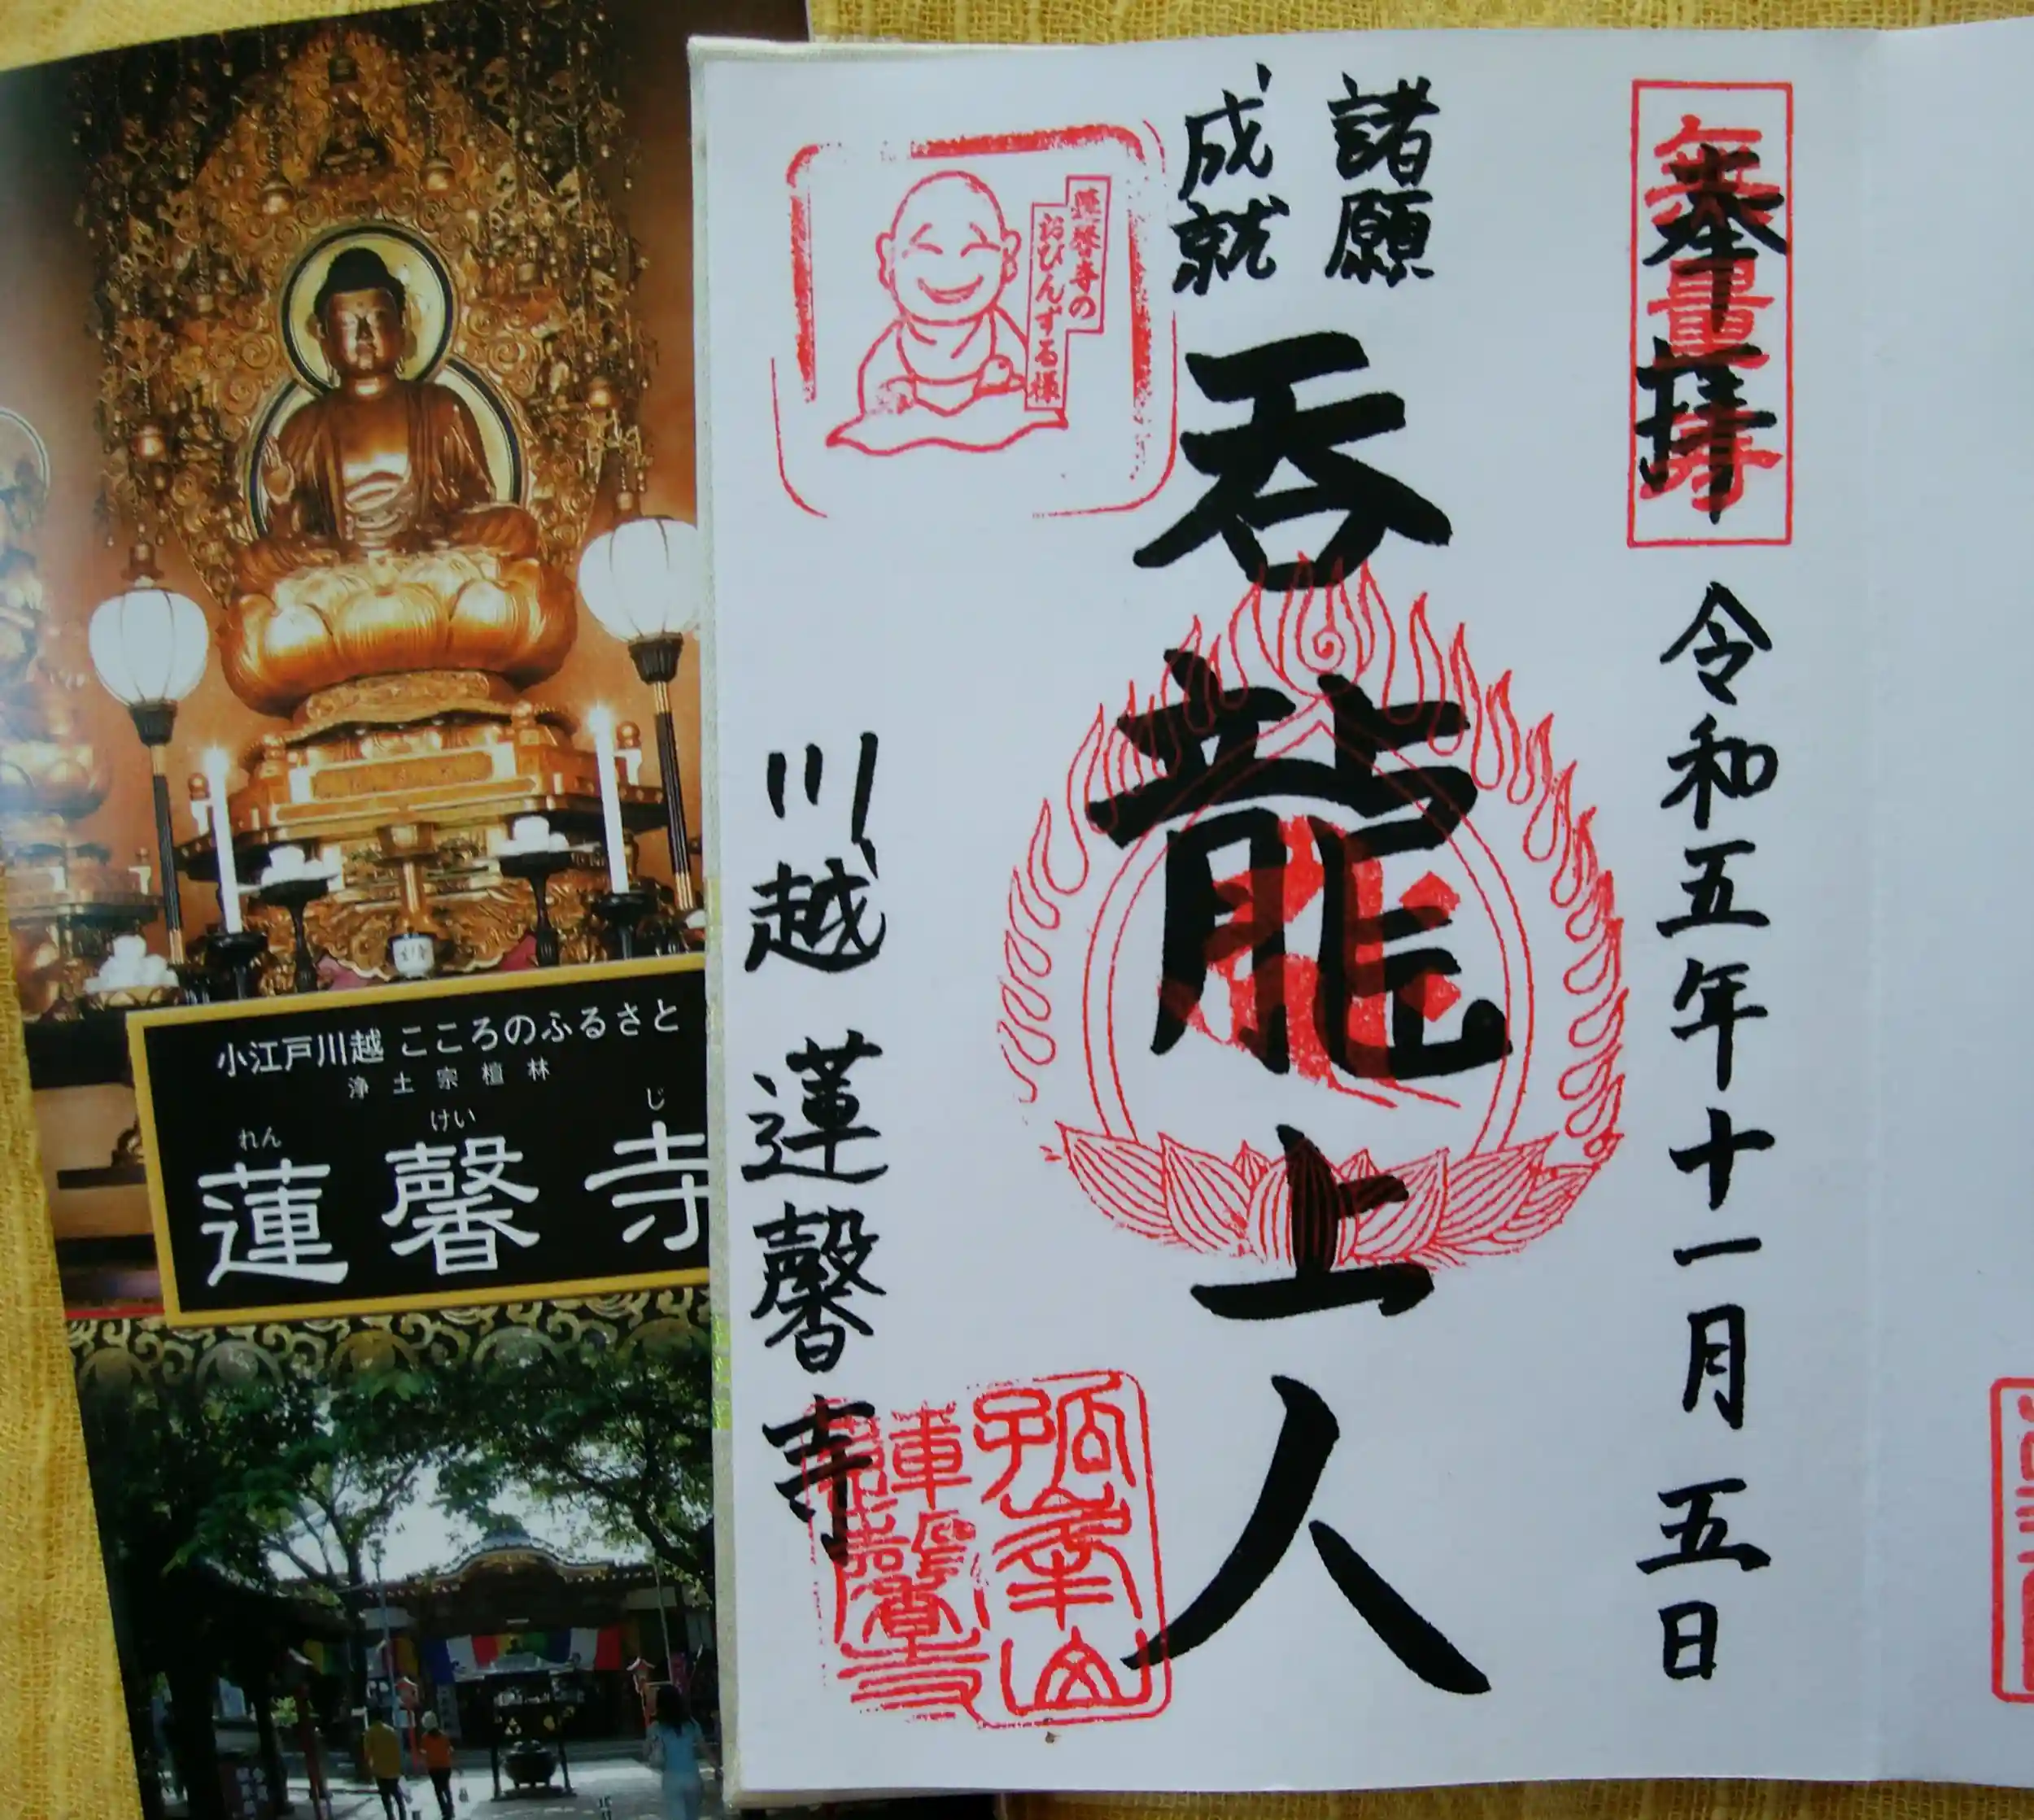 小江戸川越 こころのふるさと
浄土宗檀林
れん けい じ
蓮馨寺
奉拝
無量寿
令和五年十一月五日
諸願
成就
呑龍上人
蓮馨寺の
おびんずる様
川越 蓮馨寺
孤峯山
蓮馨寺